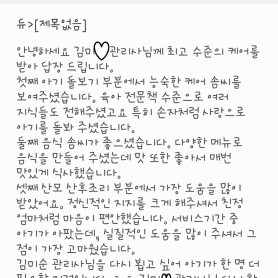 듀>[제목없음]
안녕하세요 김미♡관리사님께 최고 수준의 케어를
받아 답장 드립니다.
첫째 아기 돌보기 부분에서 능숙한 케어 솜씨를
보여주셨습니다. 육아 전문책 수준으로 여러
지식들도 전해주셨고요 특히 손자처럼 사랑으로
아기를 돌봐 주셨습니다.
둘째 음식 솜씨가 좋으셨습니다. 다양한 메뉴로
음식을 만들어 주셨는데 맛 또한 좋아서 매번
맛있게 식사했습니다.
셋째 산모 산후조리 부분에서 가장 도움을 많이
받았어요. 정신적인 지지를 크게 해주셔서 친정
엄마처럼 마음이 편안했습니다. 서비스기간 중
아기가 아팠는데, 실질적인 도움을 많이 주셔서 그
점이 가장 고마웠습니다.
김미순 관리사님을 다시 뵙고 싶어 아기가 한 명 더